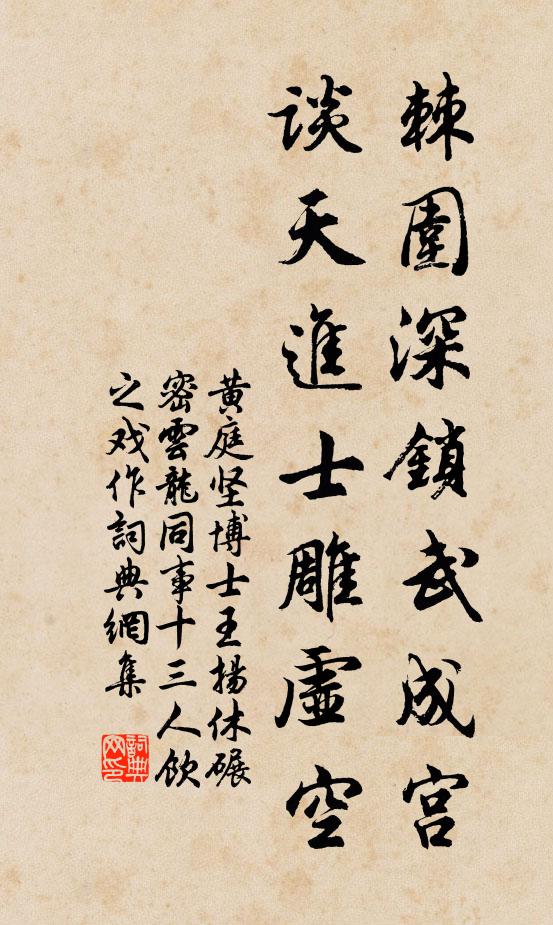 棘圍深鎖武成宫
談天進士雕虛空
黄庭坚博士王揚休碾
密雲龍同事十三人飲
之戏作詞典網集
詞典網印